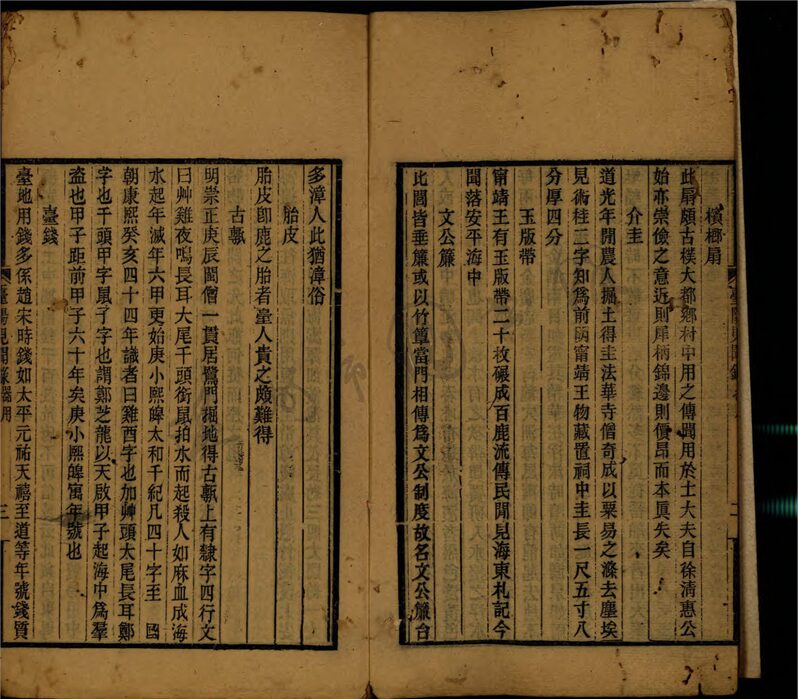 檳榔扇
此扇頗古樸大都鄉村中用之傳聞用於士大夫自徐清惠公
始亦崇儉之意近則犀柄錦邊則價昂而本眞失矣
介圭
道光年間農人掘土得圭法華寺僧奇成以粟易之滌去塵埃
見術桂二字知爲前明甯靖王物藏置祠中圭長一尺五寸八
分厚四分
玉版帶
甯靖王有玉版帶二十枚碾成百鹿流傳民間見海東札記今
聞落安平海中
文公簾
此間皆垂簾或以竹簟當門相傳爲文公制度故名文公簾台
多漳人此猶漳俗
胎皮
胎皮卽鹿之胎者臺人貴之頗難得
古甎
明崇正庚辰閩僧一貫居鷺門掘地得古甎上有隸字四行文
曰艸雞夜鳴長耳大尾干頭銜鼠拍水而起殺人如麻血成海
水起年滅年六甲更始庚小熙皡太和千紀凡四十字至　國
朝康熙癸亥四十四年識者曰雞酉字也加艸頭大尾長耳鄭
字也干頭甲字鼠子字也謂鄭芝龍以天啟甲子起海中爲羣
盗也甲子距前甲子六十年矣庚小熙皡寓年號也
臺錢
臺地用錢多係趙宋時錢如太平元祐天禧至道等年號錢質
臺陽見聞錄 器用
三